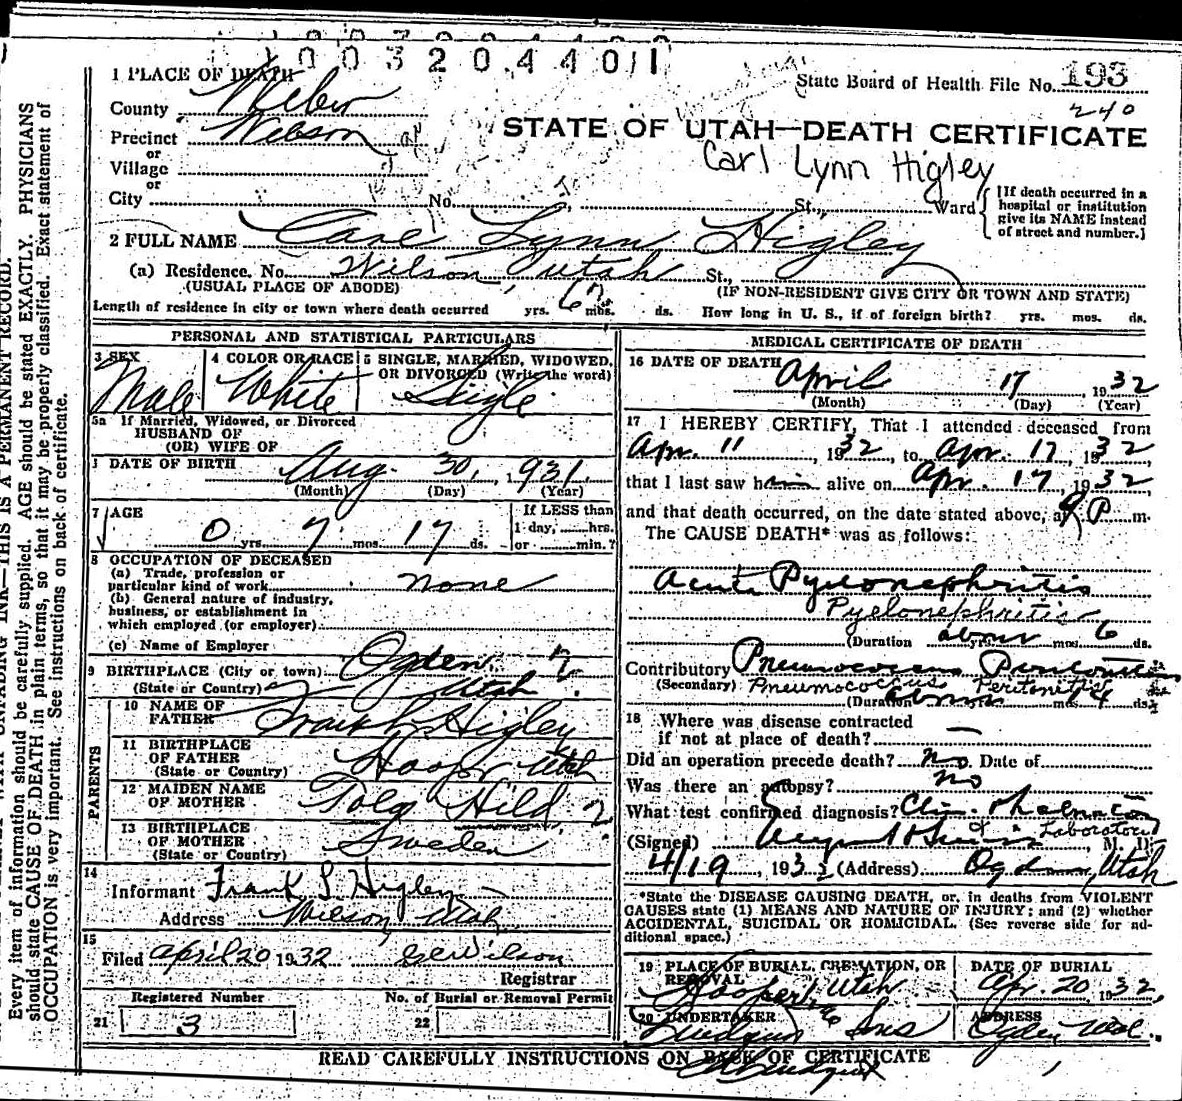 003204401
1 PLACE OF DEATH
State Board of Health File No. 193
240
County Weber
Precinct Wilson
or
Village
or
City No. St., Ward
STATE OF UTAH—DEATH CERTIFICATE
Carl Lynn Higley
[If death occurred in a
hospital or institution
give its NAME instead
of street and number.]
2 FULL NAME Carl Lynn Higley
(a) Residence. No. Wilson, Utah St.,
(USUAL PLACE OF ABODE) (IF NON-RESIDENT GIVE CITY OR TOWN AND STATE)
Length of residence in city or town where death occurred yrs. mos. ds. How long in U. S., if of foreign birth? yrs. mos. ds.
PERSONAL AND STATISTICAL PARTICULARS
3 SEX
Male
4 COLOR OR RACE
White
5 SINGLE, MARRIED, WIDOWED,
OR DIVORCED (Write the word)
Single
5a If Married, Widowed, or Divorced
HUSBAND OF
(OR) WIFE OF
DATE OF BIRTH Aug. 30, 1931.
(Month) (Day) (Year)
7 AGE
0 yrs. 7 mos. 17 ds.
If LESS than
1 day, hrs.
or min.?
8 OCCUPATION OF DECEASED
(a) Trade, profession or
particular kind of work none
(b) General nature of industry,
business, or establishment in
which employed (or employer)
(c) Name of Employer
9 BIRTHPLACE (City or town) Ogden
(State or Country) Utah
PARENTS
10 NAME OF
FATHER Frank Higley
11 BIRTHPLACE
OF FATHER
(State or Country) Hooper Utah
12 MAIDEN NAME
OF MOTHER Hild
13 BIRTHPLACE
OF MOTHER
(State or Country) Sweden
14
Informant Frank L Higley
Address Wilson, Utah
15
Filed April 20 1932 Wilson
Registrar
Registered Number No. of Burial or Removal Permit
21 3 22
MEDICAL CERTIFICATE OF DEATH
16 DATE OF DEATH
April 17, 1932
(Month) (Day) (Year)
17 I HEREBY CERTIFY, That I attended deceased from
Apr. 11, 1932, to Apr. 17, 1932,
that I last saw him alive on Apr. 17, 1932,
and that death occurred, on the date stated above, at 9 P m.
The CAUSE DEATH* was as follows:
Acute Pyelonephritis
Pyelonephritis
(Duration about yrs. mos. 6 ds.
Contributory Pneumococcus Peritonitis
(Secondary) Pneumococcus Peritonitis
(Duration about yrs. mos. 4 ds.
18 Where was disease contracted
if not at place of death? —
Did an operation precede death? No. Date of
Was there an autopsy? no
What test confirmed diagnosis? Clin.
& Laboratory
(Signed) , M. D.
4/19, 1932 (Address) Ogden, Utah
*State the DISEASE CAUSING DEATH, or, in deaths from VIOLENT
CAUSES state (1) MEANS AND NATURE OF INJURY; and (2) whether
ACCIDENTAL, SUICIDAL OR HOMICIDAL. (See reverse side for ad-
ditional space.)
19 PLACE OF BURIAL, CREMATION, OR
REMOVAL
Hooper, Utah
DATE OF BURIAL
Apr. 20, 1932,
20 UNDERTAKER
& Sons
ADDRESS
Ogden Utah.
READ CAREFULLY INSTRUCTIONS ON BACK OF CERTIFICATE
INK—THIS IS A PERMANENT RECORD.
Every item of information should be carefully supplied. AGE should be stated EXACTLY. PHYSICIANS
should state CAUSE OF DEATH in plain terms, so that it may be properly classified. Exact statement of
OCCUPATION is very important. See instructions on back of certificate.